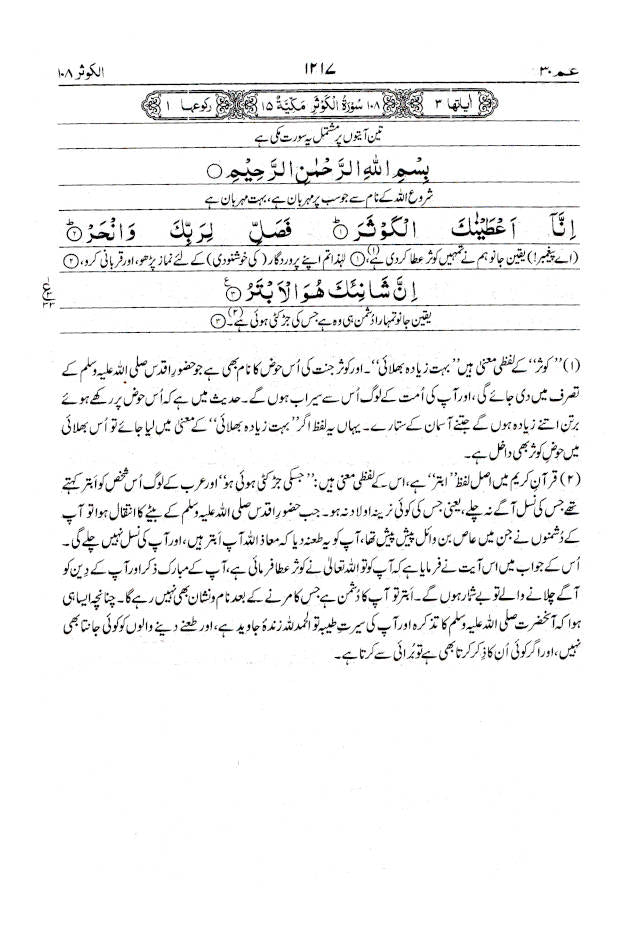 عم ۳۰ ۱۲۱۷ الکوثر ۱۰۸
اٰیاتھا ۳ ۱۰۸ سُوْرَۃُ الْکَوْثَرِ مَکِّیَّۃٌ ۱۵ رکوعہا ۱
تین آیتوں پر مشتمل یہ سورت مکی ہے
بِسْمِ اللّٰهِ الرَّحْمٰنِ الرَّحِیْمِ ○
شروع اللہ کے نام سے جو سب پر مہربان ہے، بہت مہربان ہے
اِنَّاۤ اَعْطَیْنٰكَ الْكَوْثَرَ ﴿۱﴾ فَصَلِّ لِرَبِّكَ وَانْحَرْ ﴿۲﴾
(اے پیغمبر!) یقین جانو ہم نے تمہیں کوثر عطا کردی ہے،(۱) ﴿۱﴾ لہٰذا تم اپنے پروردگار (کی خوشنودی) کے لئے نماز پڑھو، اور قربانی کرو، ﴿۲﴾
اِنَّ شَانِئَكَ هُوَ الْاَبْتَرُ ﴿۳﴾ ع
یقین جانو تمہارا دُشمن ہی وہ ہے جس کی جڑ کٹی ہوئی ہے۔(۲) ﴿۳﴾
(۱) ”کوثر“ کے لفظی معنیٰ ہیں ”بہت زیادہ بھلائی“۔ اور کوثر جنت کی اُس حوض کا نام بھی ہے جو حضورِ اقدس صلی اللہ علیہ وسلم کے
تصرف میں دی جائے گی، اور آپ کی اُمت کے لوگ اُس سے سیراب ہوں گے۔ حدیث میں ہے کہ اُس حوض پر رکھے ہوئے
برتن اتنے زیادہ ہوں گے جتنے آسمان کے ستارے۔ یہاں یہ لفظ اگر ”بہت زیادہ بھلائی“ کے معنیٰ میں لیا جائے تو اُس بھلائی
میں حوضِ کوثر بھی داخل ہے۔
(۲) قرآنِ کریم میں اصل لفظ ”ابتر“ ہے، اس کے لفظی معنیٰ ہیں: ”جسکی جڑ کٹی ہوئی ہو“ اور عرب کے لوگ اُس شخص کو اَبتر کہتے
تھے جس کی نسل آگے نہ چلے، یعنی جس کی کوئی نرینہ اولاد نہ ہو۔ جب حضورِ اقدس صلی اللہ علیہ وسلم کے بیٹے کا انتقال ہوا تو آپ
کے دُشمنوں نے جن میں عاص بن وائل پیش پیش تھا، آپ کو یہ طعنہ دیا کہ معاذ اللہ آپ اَبتر ہیں، اور آپ کی نسل نہیں چلے گی۔
اُس کے جواب میں اس آیت نے فرمایا ہے کہ آپ کو تو اللہ تعالیٰ نے کوثر عطا فرمائی ہے، آپ کے مبارک ذکر اور آپ کے دِین کو
آگے چلانے والے تو بے شمار ہوں گے۔ اَبتر تو آپ کا دُشمن ہے جس کا مرنے کے بعد نام ونشان بھی نہیں رہے گا۔ چنانچہ ایسا ہی
ہوا کہ آنحضرت صلی اللہ علیہ وسلم کا تذکرہ اور آپ کی سیرتِ طیبہ تو الحمدللہ زندۂ جاوید ہے، اور طعنے دینے والوں کو کوئی جانتا بھی
نہیں، اور اگر کوئی اُن کا ذِکر کرتا بھی ہے تو بُرائی سے کرتا ہے۔